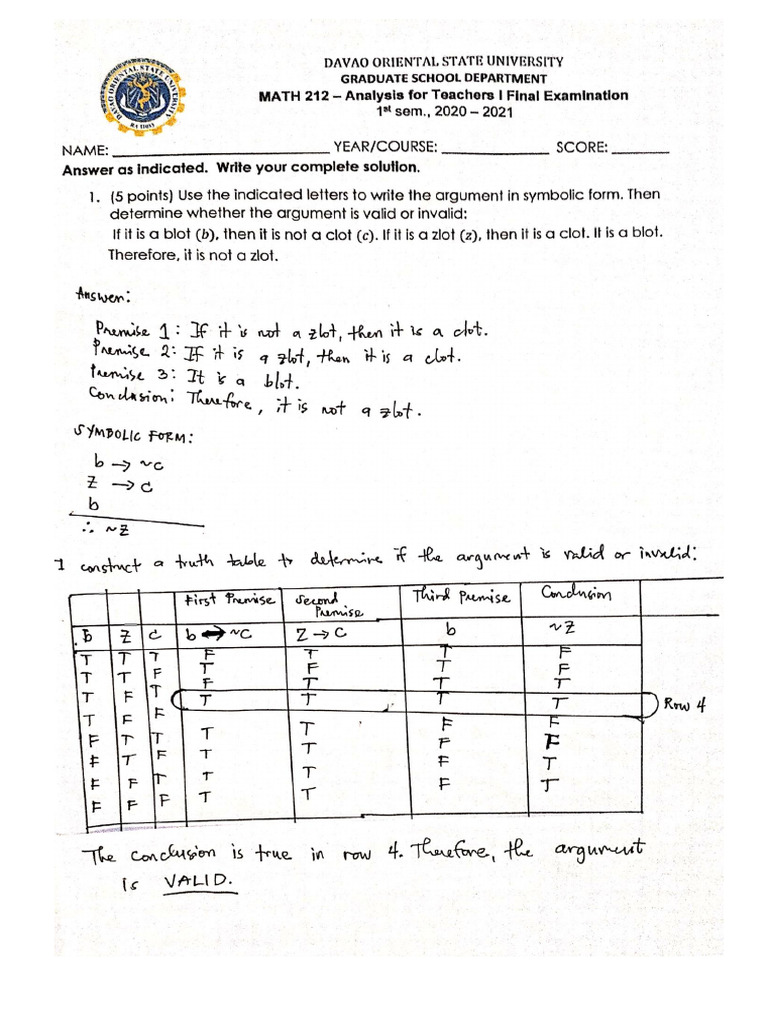 DAVAO ORIENTAL STATE UNIVERSITY
GRADUATE SCHOOL DEPARTMENT
MATH 212 – Analysis for Teachers I Final Examination
1st sem., 2020 – 2021
NAME: ____________ YEAR/COURSE: ____________ SCORE: ________
Answer as indicated. Write your complete solution.
1. (5 points) Use the indicated letters to write the argument in symbolic form. Then
determine whether the argument is valid or invalid:
If it is a blot (b), then it is not a clot (c). If it is a zlot (z), then it is a clot. It is a blot.
Therefore, it is not a zlot.
Answer:
Premise 1: If it is not a zlot, then it is a clot.
Premise 2: If it is a zlot, then it is a clot.
Premise 3: It is a blot.
Conclusion: Therefore, it is not a zlot.
SYMBOLIC FORM:
b → ~c
z → c
b
∴ ~z
I construct a truth table to determine if the argument is valid or invalid:
First Premise Second Premise Third Premise Conclusion
b z c b → ~c z → c b ~z
T T T F T T F
T T F T F T F
T F T F T T T
T F F T T T T Row 4
F T T T T F F
F T F T T F F
F F T T T F T
F F F T T F T
The conclusion is true in row 4. Therefore, the argument
is VALID.